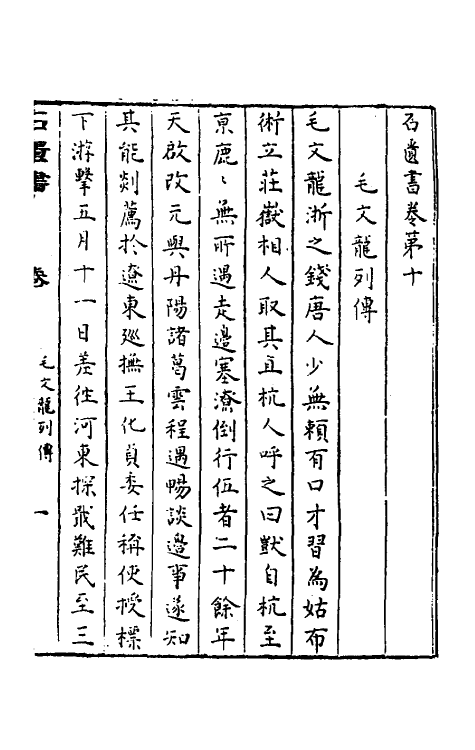 石匱書卷第十
毛文龍列傳
毛文龍浙之錢唐人少無賴有口才習為姑布
術立莊嶽相人取其直杭人呼之曰獃自杭至
京鹿〻無所遇走邊塞潦倒行伍者二十餘年
天啟改元與丹陽諸葛雲程遇暢談邊事遂知
其能剡薦於遼東廵撫王化貞委任稱使授標
下游擊五月十一日差往河東探戢難民至三
石匱書
卷
毛文龍列傳
一